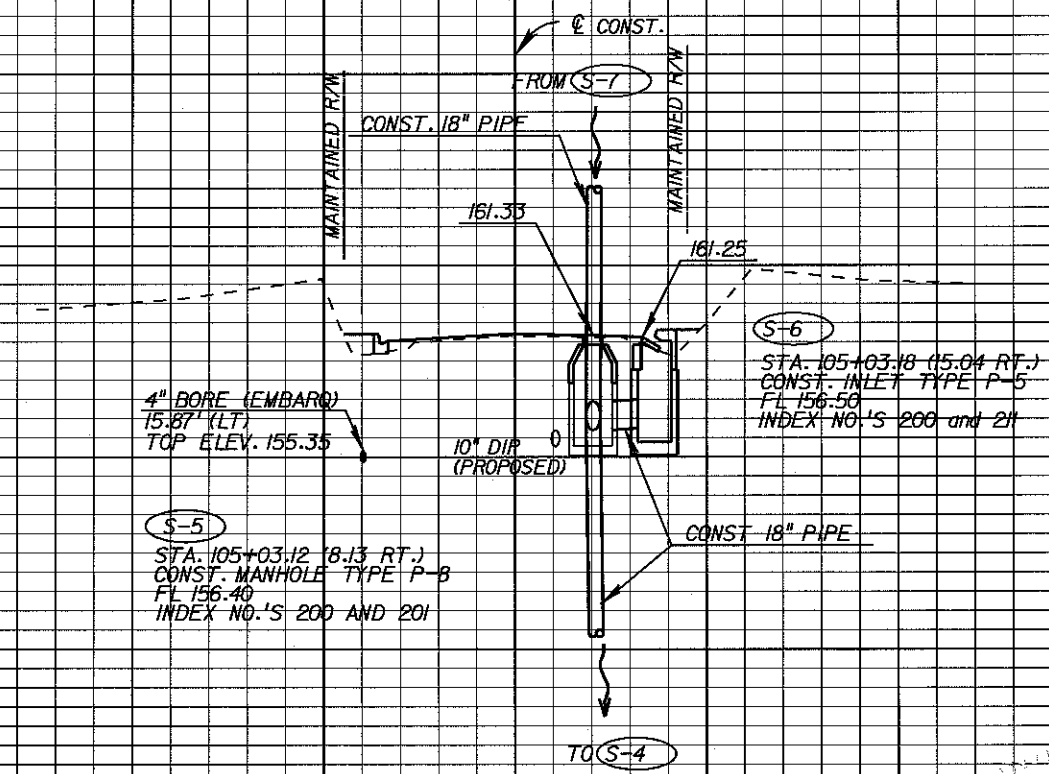 ℄ CONST.
FROM S-7
MAINTAINED R/W
MAINTAINED R/W
CONST. 18" PIPE
161.33
161.25
S-6
STA. 105+03.18 (15.04 RT.)
CONST. INLET TYPE P-5
FL 156.50
INDEX NO.'S 200 and 211
4" BORE (EMBARQ)
15.87' (LT)
TOP ELEV. 155.35
10" DIP
(PROPOSED)
S-5
STA. 105+03.12 (8.13 RT.)
CONST. MANHOLE TYPE P-8
FL 156.40
INDEX NO.'S 200 AND 201
CONST 18" PIPE
TO S-4